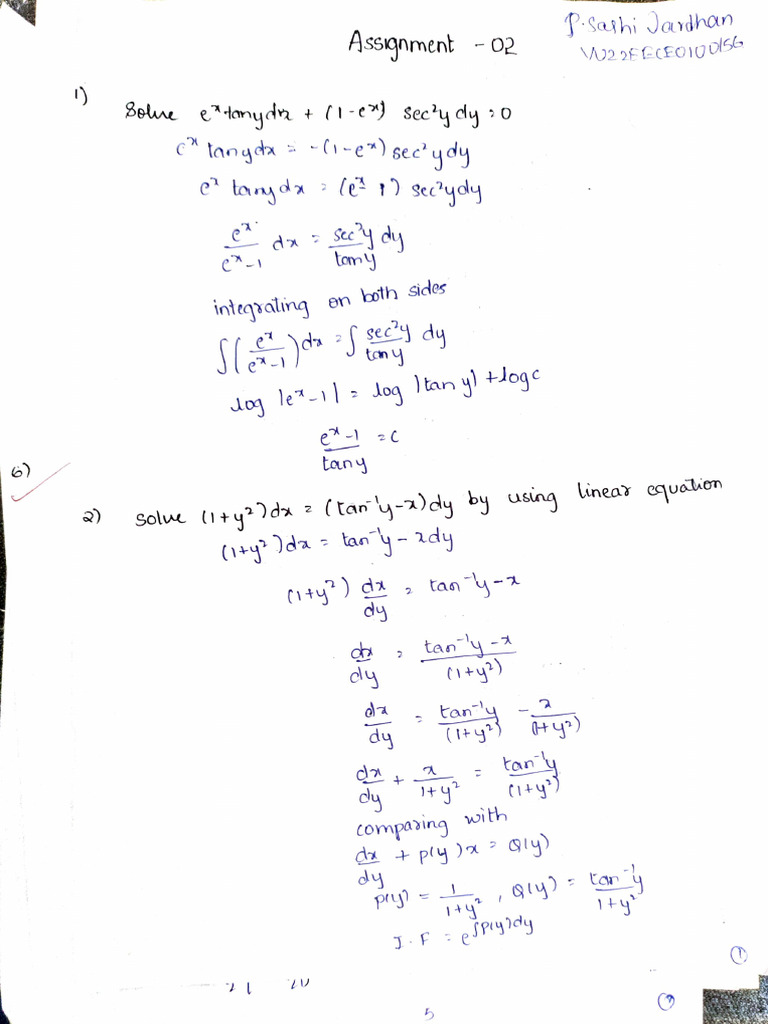 Assignment - 02
P. Sashi Vardhan
1)
Solve e^x tany dx + (1-e^x) sec²y dy = 0
e^x tany dx = -(1-e^x) sec²y dy
e^x tany dx = (e^x - 1) sec²y dy
e^x/(e^x-1) dx = sec²y/tany dy
integrating on both sides
∫(e^x/(e^x-1)) dx = ∫ sec²y/tany dy
log |e^x-1| = log |tan y| + log c
(e^x-1)/tany = c
6)
2) solve (1+y²)dx = (tan⁻¹y-x)dy by using linear equation
(1+y²)dx = tan⁻¹y - xdy
(1+y²) dx/dy = tan⁻¹y-x
dx/dy = (tan⁻¹y-x)/(1+y²)
dx/dy = tan⁻¹y/(1+y²) - x/(1+y²)
dx/dy + x/(1+y²) = tan⁻¹y/(1+y²)
comparing with
dx/dy + p(y)x = Q(y)
p(y) = 1/(1+y²), Q(y) = tan⁻¹y/(1+y²)
I.F = e^∫p(y)dy
1
5